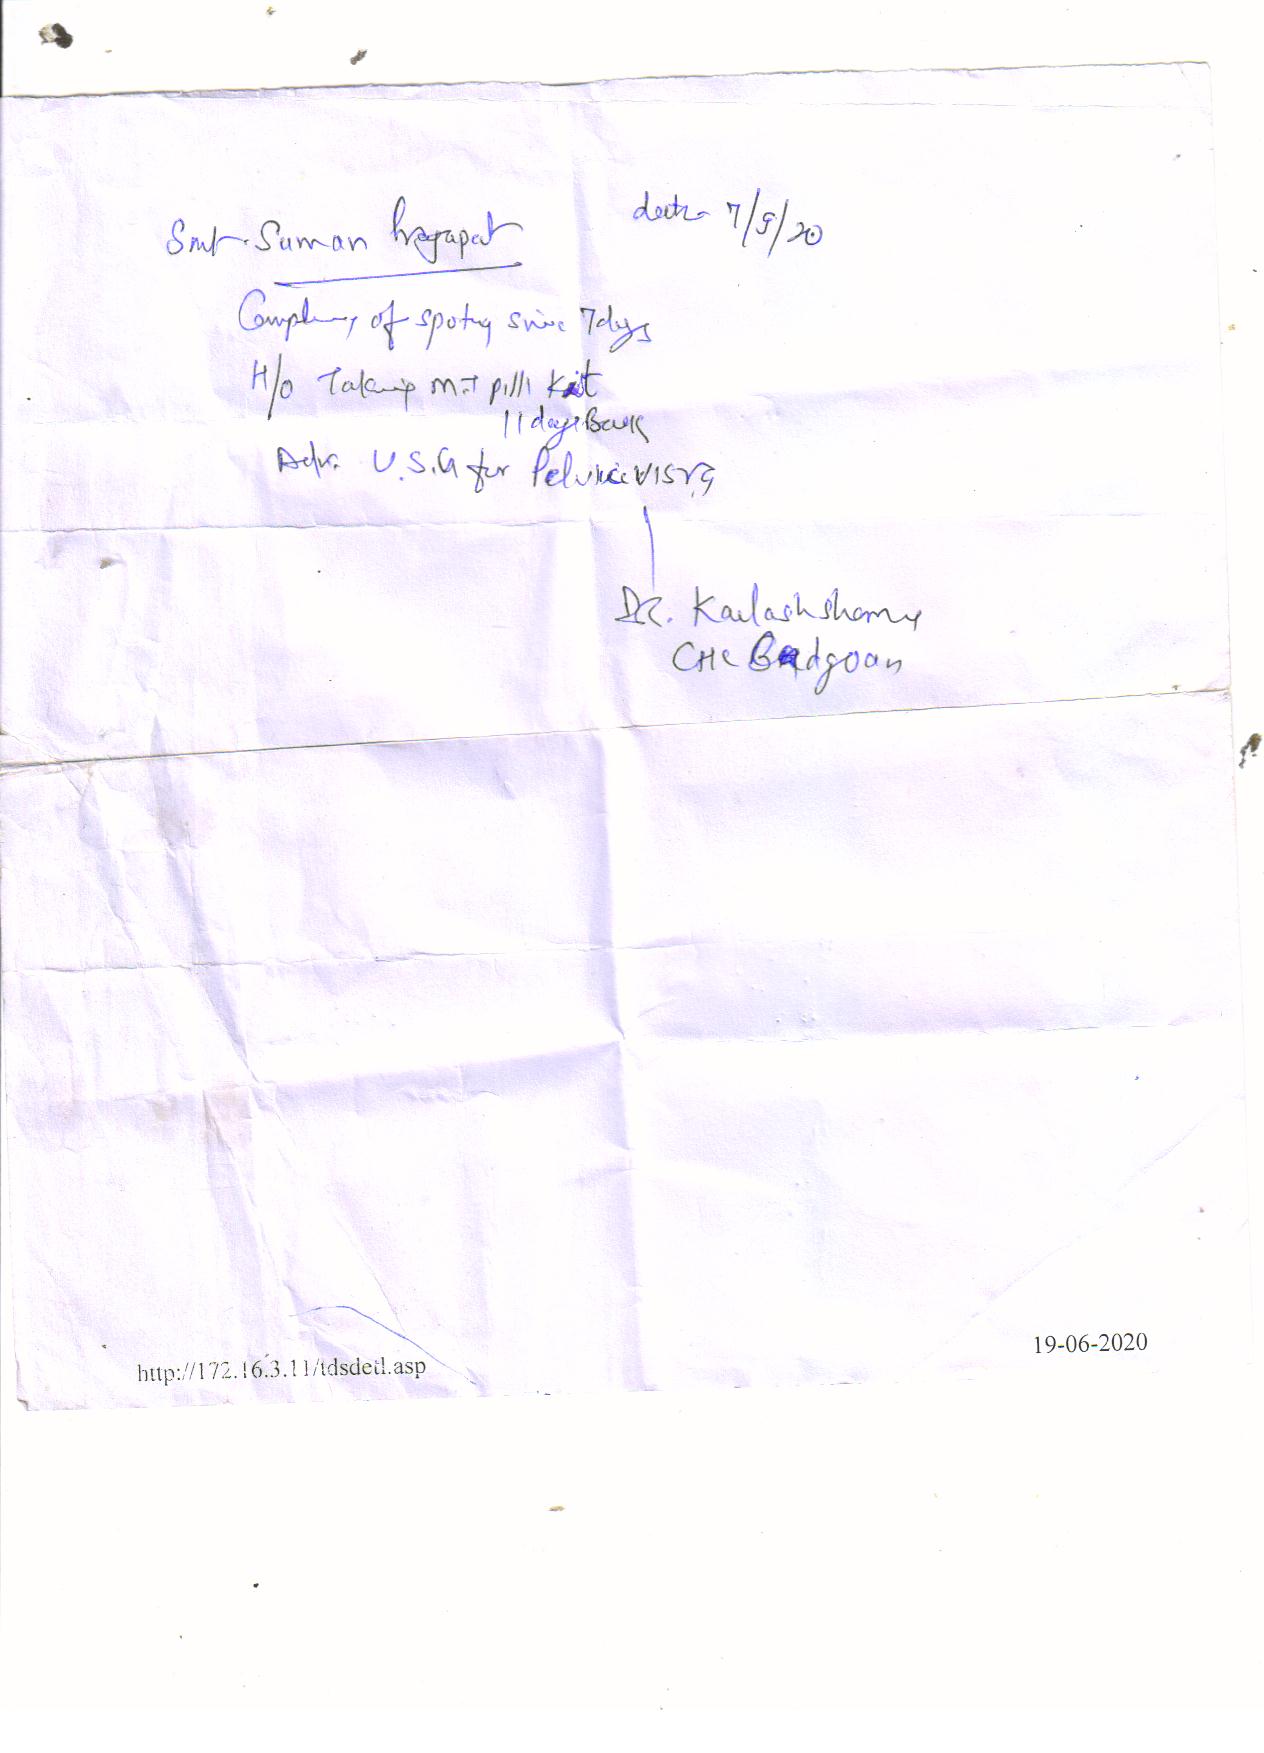 date 7/9/20
Smt. Suman Prajapat
Complaing of spoting since 7 days
H/o Taking M.T pills Kit
11 days Back
Adv. U.S.G for Pelvice
Dr. Kailash Sharma
CHC Badgoan
http://172.16.3.11/tdsdetl.asp
19-06-2020